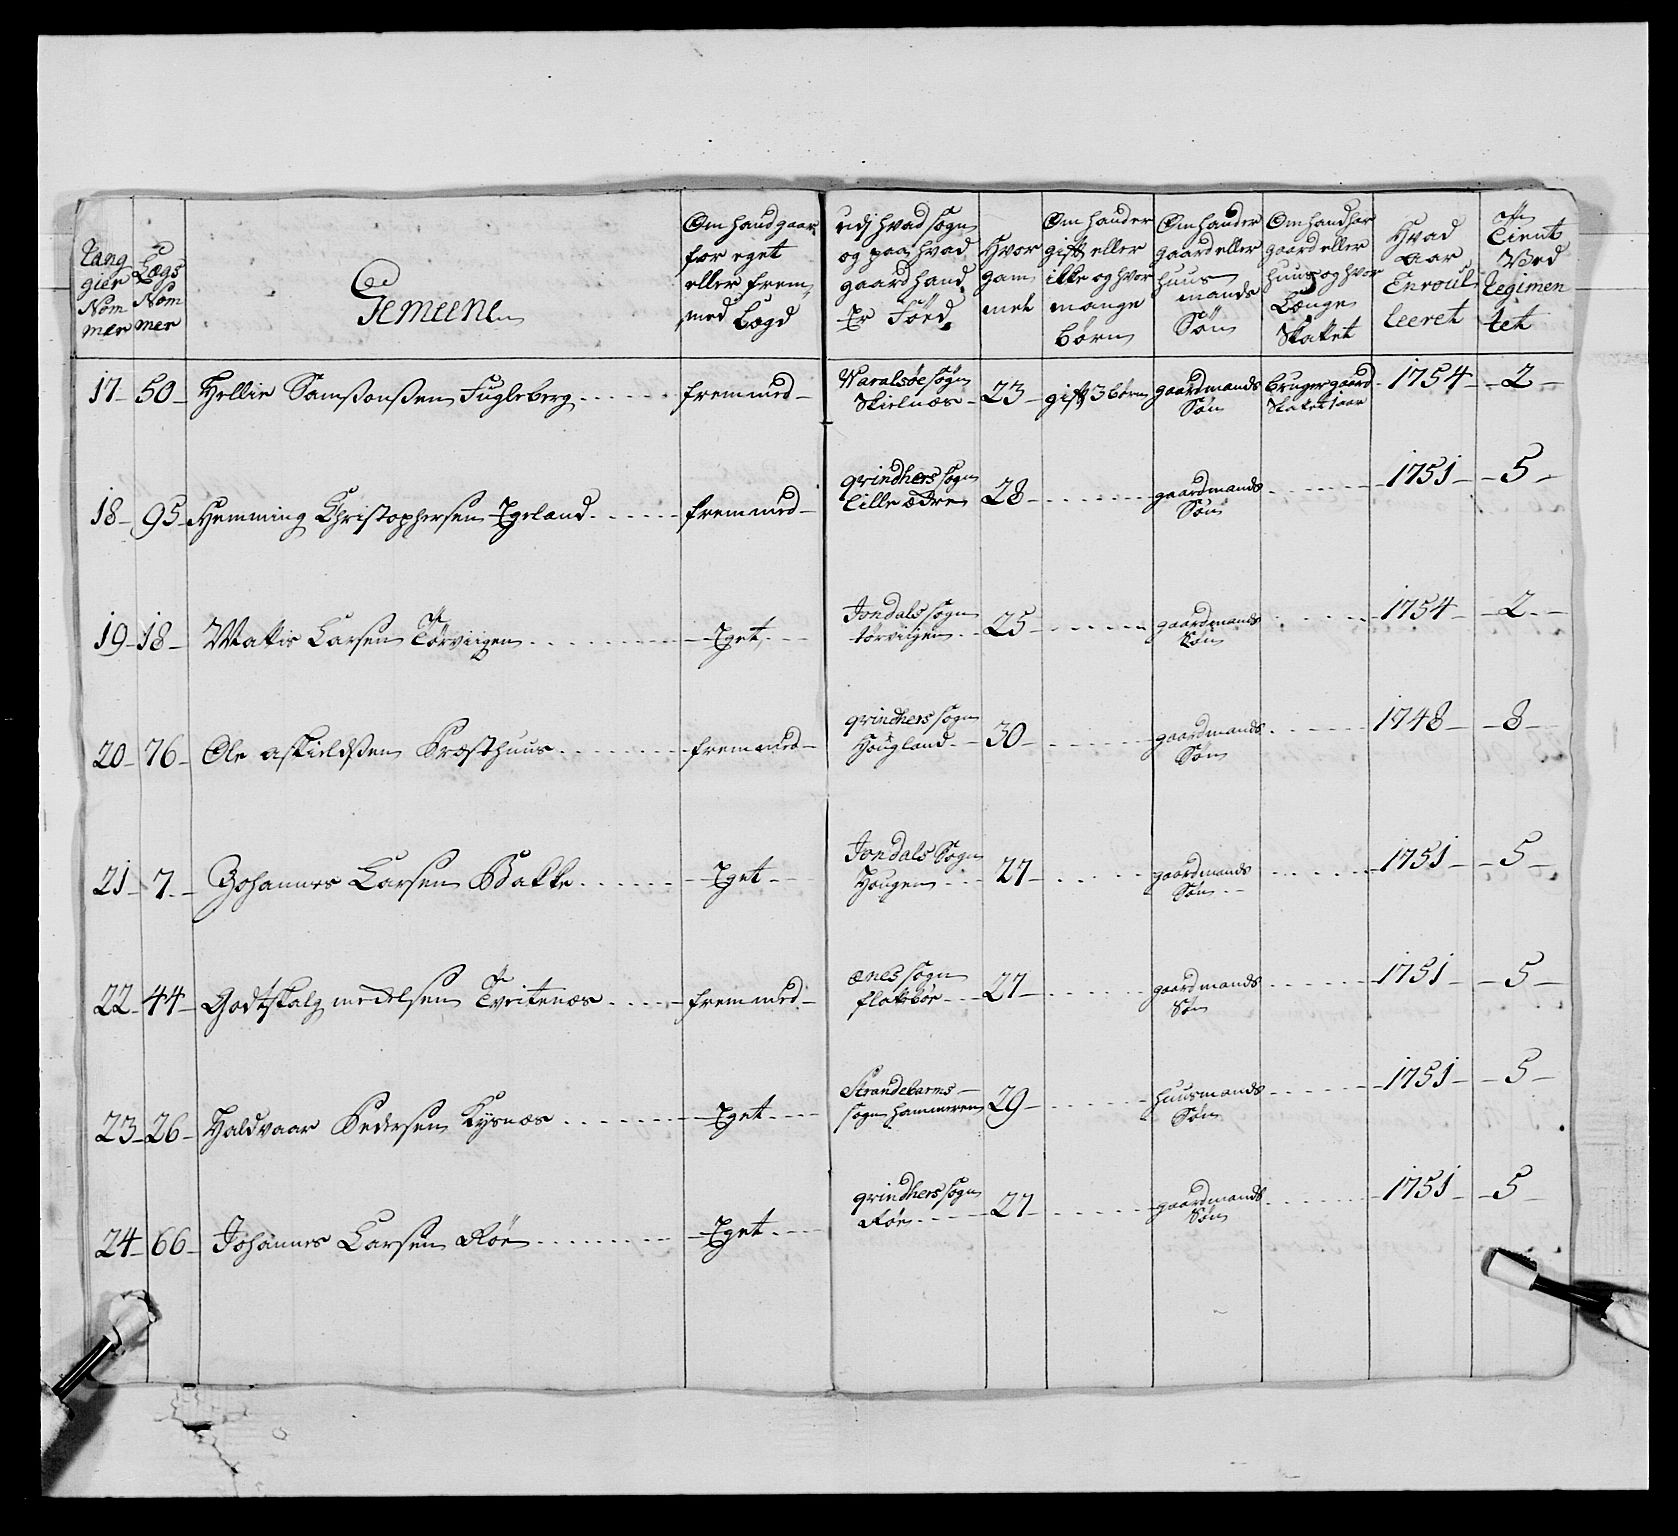 Rang
gier
Nom
mer
Lægs
Nom
mer
Gemeene
Om hand gaar
for eget
eller frem
med Lægd
udj hvad sogn
og paa hvad
gaard hand
Er Føed
Hvor
gam
mel
Om hand er
gift eller
ikke og hvor
mange
børn
Om hand er
gaard eller
huus
mands
Søn
Om hand har
gaard eller
huus og hvor
Længe
Skattet
Hvad
aar
Enroul
leeret
Tient
Ved
Regimen
tet
17 50 Hellie Samsonsen Fugleberg fremmed Waralsøe sogn Skielnæs 23 gift 3 børn gaardmands Søn bruger gaard Skattet 1 aar 1754 2
18 95 Hemming Christophersen Egeland fremmed qvindhers sogn Lille ædre 28 gaardmands Søn 1751 5
19 18 Mattis Larsen Tørviigen Eget Jondals sogn tørviigen 25 gaardmands Søn 1754 2
20 76 Ole askieldsen Krosthuus fremmed qvindhers sogn Hougland 30 gaardmands Søn 1748 8
21 7 Johannes Larsen Bakke Eget Jondals Sogn Hougen 27 gaardmands Søn 1751 5
22 44 Godtskalg medelsen Tveitenæs fremmed ænes sogn flatebøe 27 gaardmands Søn 1751 5
23 26 Haldvaar Pedersen Kysnæs Eget Strandebarms sogn hammeren 29 huusmands Søn 1751 5
24 66 Johannes Larsen Røe Eget qvindhers sogn Røe 27 gaardmands Søn 1751 5